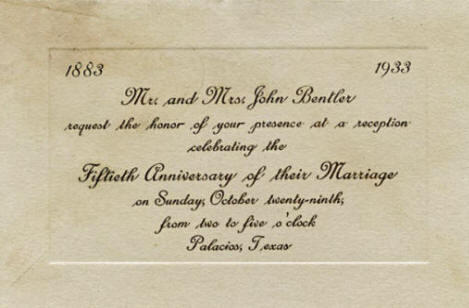 1883 1933
Mr. and Mrs. John Bentler
request the honor of your presence at a reception
celebrating the
Fiftieth Anniversary of their Marriage
on Sunday, October twenty-ninth,
from two to five o'clock
Palacios, Texas